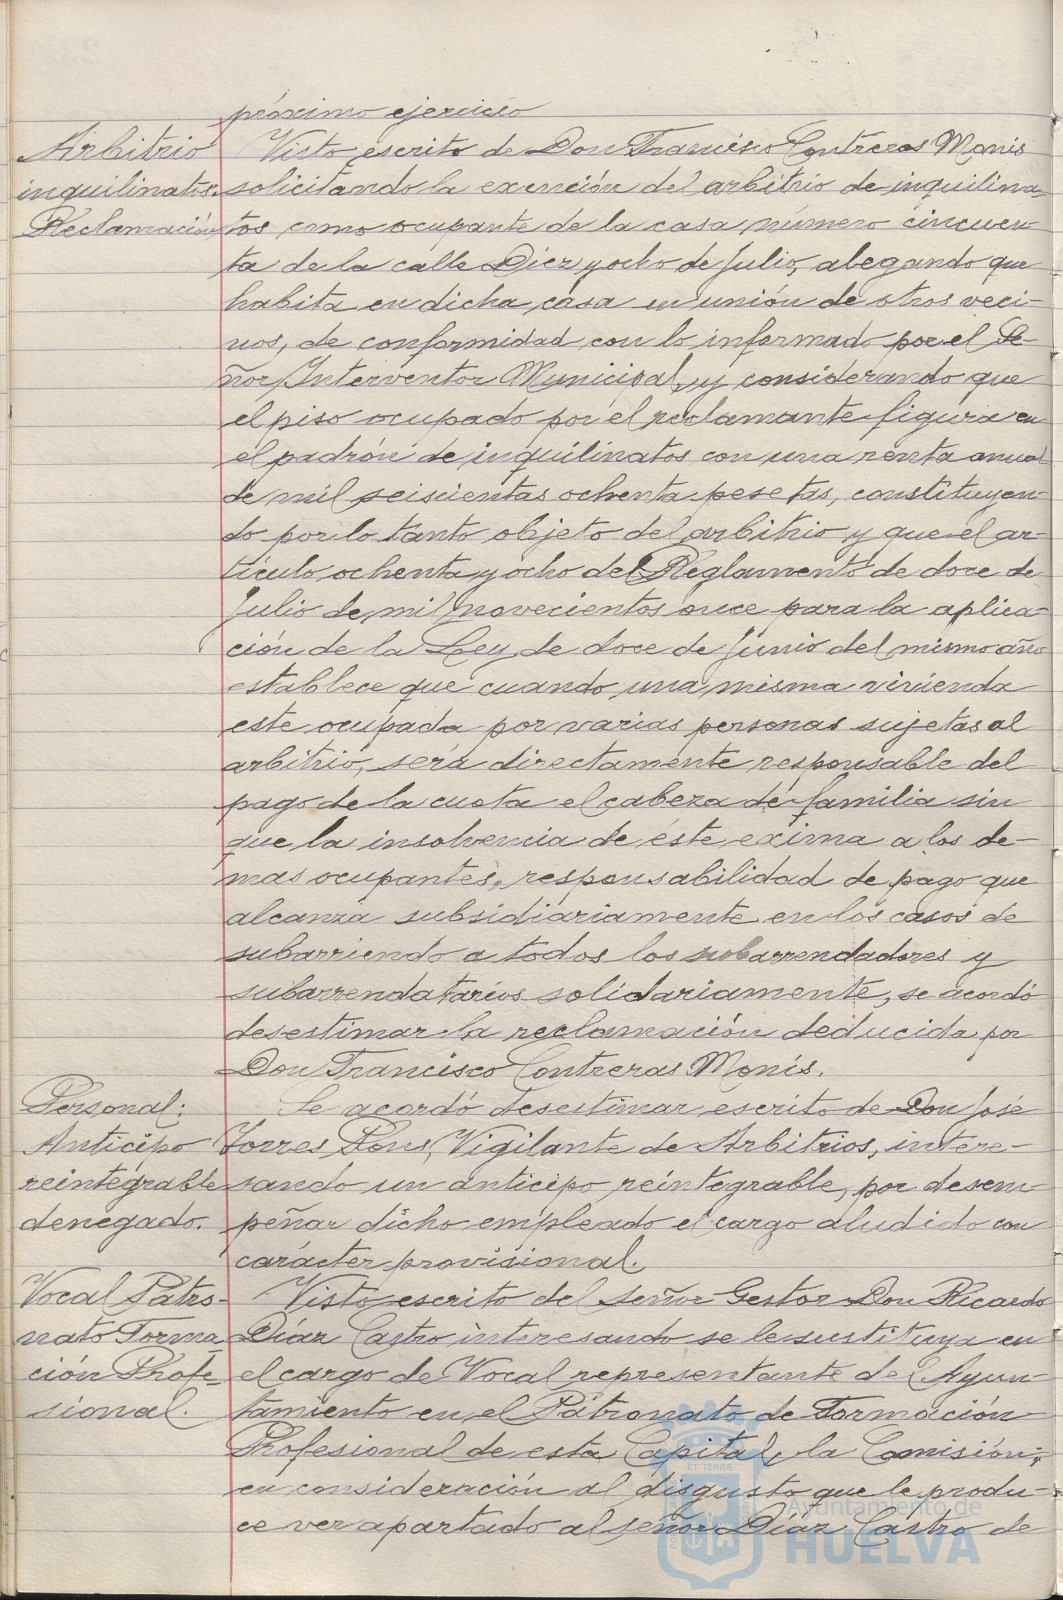 próximo ejercicio
Arbitrio
inquilinatos.
Reclamación
Visto escrito de Don Francisco Contreras Monis
solicitando la exención del arbitrio de inquilina-
tos como ocupante de la casa número cincuen-
ta de la calle Diez y ocho de Julio, alegando que
habita en dicha casa en unión de otros veci-
nos, de conformidad con lo informado por el Se-
ñor Interventor Municipal, y considerando que
el piso ocupado por el reclamante figura en
el padrón de inquilinatos con una renta anual
de mil seiscientas ochenta pesetas, constituyen-
do por lo tanto objeto del arbitrio y que el ar-
tículo ochenta y ocho del Reglamento de doce de
Julio de mil novecientos once para la aplica-
ción de la Ley de doce de Junio del mismo año
establece que cuando una misma vivienda
este ocupada por varias personas sujetas al
arbitrio, será directamente responsable del
pago de la cuota el cabeza de familia sin
que la insolvencia de éste exima a los de-
mas ocupantes, responsabilidad de pago que
alcanza subsidiariamente en los casos de
subarriendo a todos los subarrendadores y
subarrendatarios solidariamente, se acordó
desestimar la reclamación deducida por
Don Francisco Contreras Monis.
Personal:
Anticipo
reintegrable
denegado.
Se acordó desestimar escrito de Don José
Torres Pons, Vigilante de Arbitrios, intere-
sando un anticipo reintegrable, por desem-
peñar dicho empleado el cargo aludido con
carácter provisional.
Vocal Patro-
nato Forma
ción Profe-
sional.
Visto escrito del Señor Gestor Don Ricardo
Díaz Castro interesando se le sustituya en
el cargo de Vocal representante del Ayun-
tamiento en el Patronato de Formación
Profesional de esta Capital, la Comisión,
en consideración al disgusto que le produ-
ce ver apartado al señor Díaz Castro de
Ayuntamiento de
HUELVA